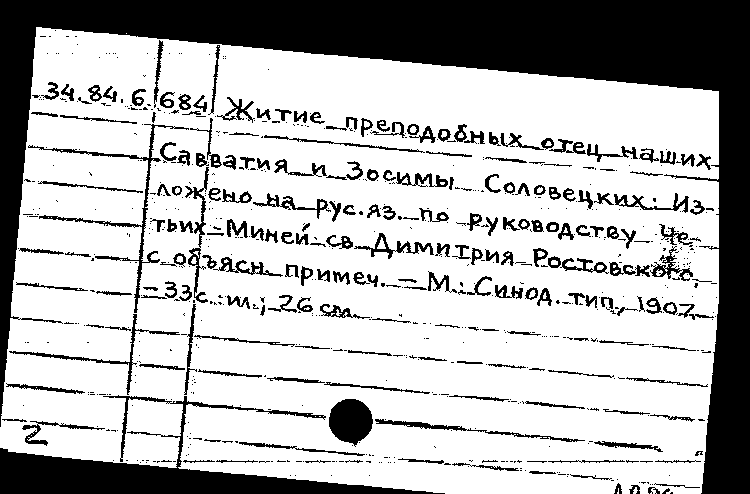 34.84.6.684 Житие преподобных отец наших
Савватия и Зосимы Соловецких: Из-
ложено на рус.яз. по руководству Че-
тьих-Миней св. Димитрия Ростовского,
с объясн. примеч. – М.: Синод. тип., 1907.
– 33с.: ил.; 26 см.
2